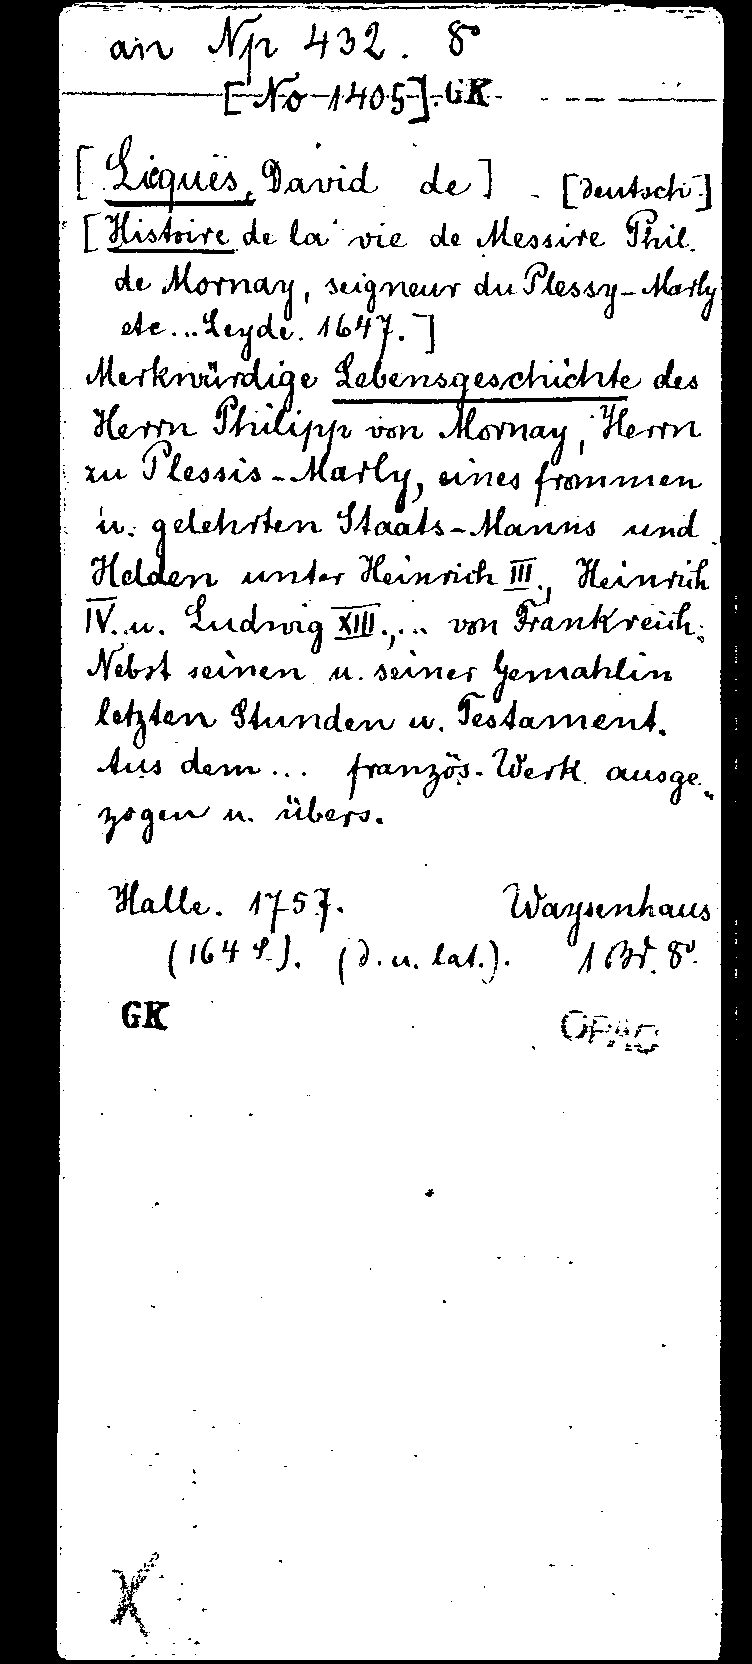 an Np 432. 8°
[No 1405]. GK
[Licques, David de] [deutsch.]
[Histoire de la vie de Messire Phil.
de Mornay, seigneur du Plessy-Marly
etc... Leyde. 1647.]
Merkwürdige Lebensgeschichte des
Herrn Philipp von Mornay, Herrn
zu Plessis-Marly, eines frommen
u. gelehrten Staats-Manns und
Helden unter Heinrich III., Heinrich
IV. u. Ludwig XIII.,... von Frankreich.
Nebst seinen u. seiner Gemahlin
letzten Stunden u. Testament.
Aus dem... französ. Werk ausge-
zogen u. übers.
Halle. 1757. Waysenhaus
(164 S.). (d. u. lat.). 1 Bd. 8°.
GK OPAC
X